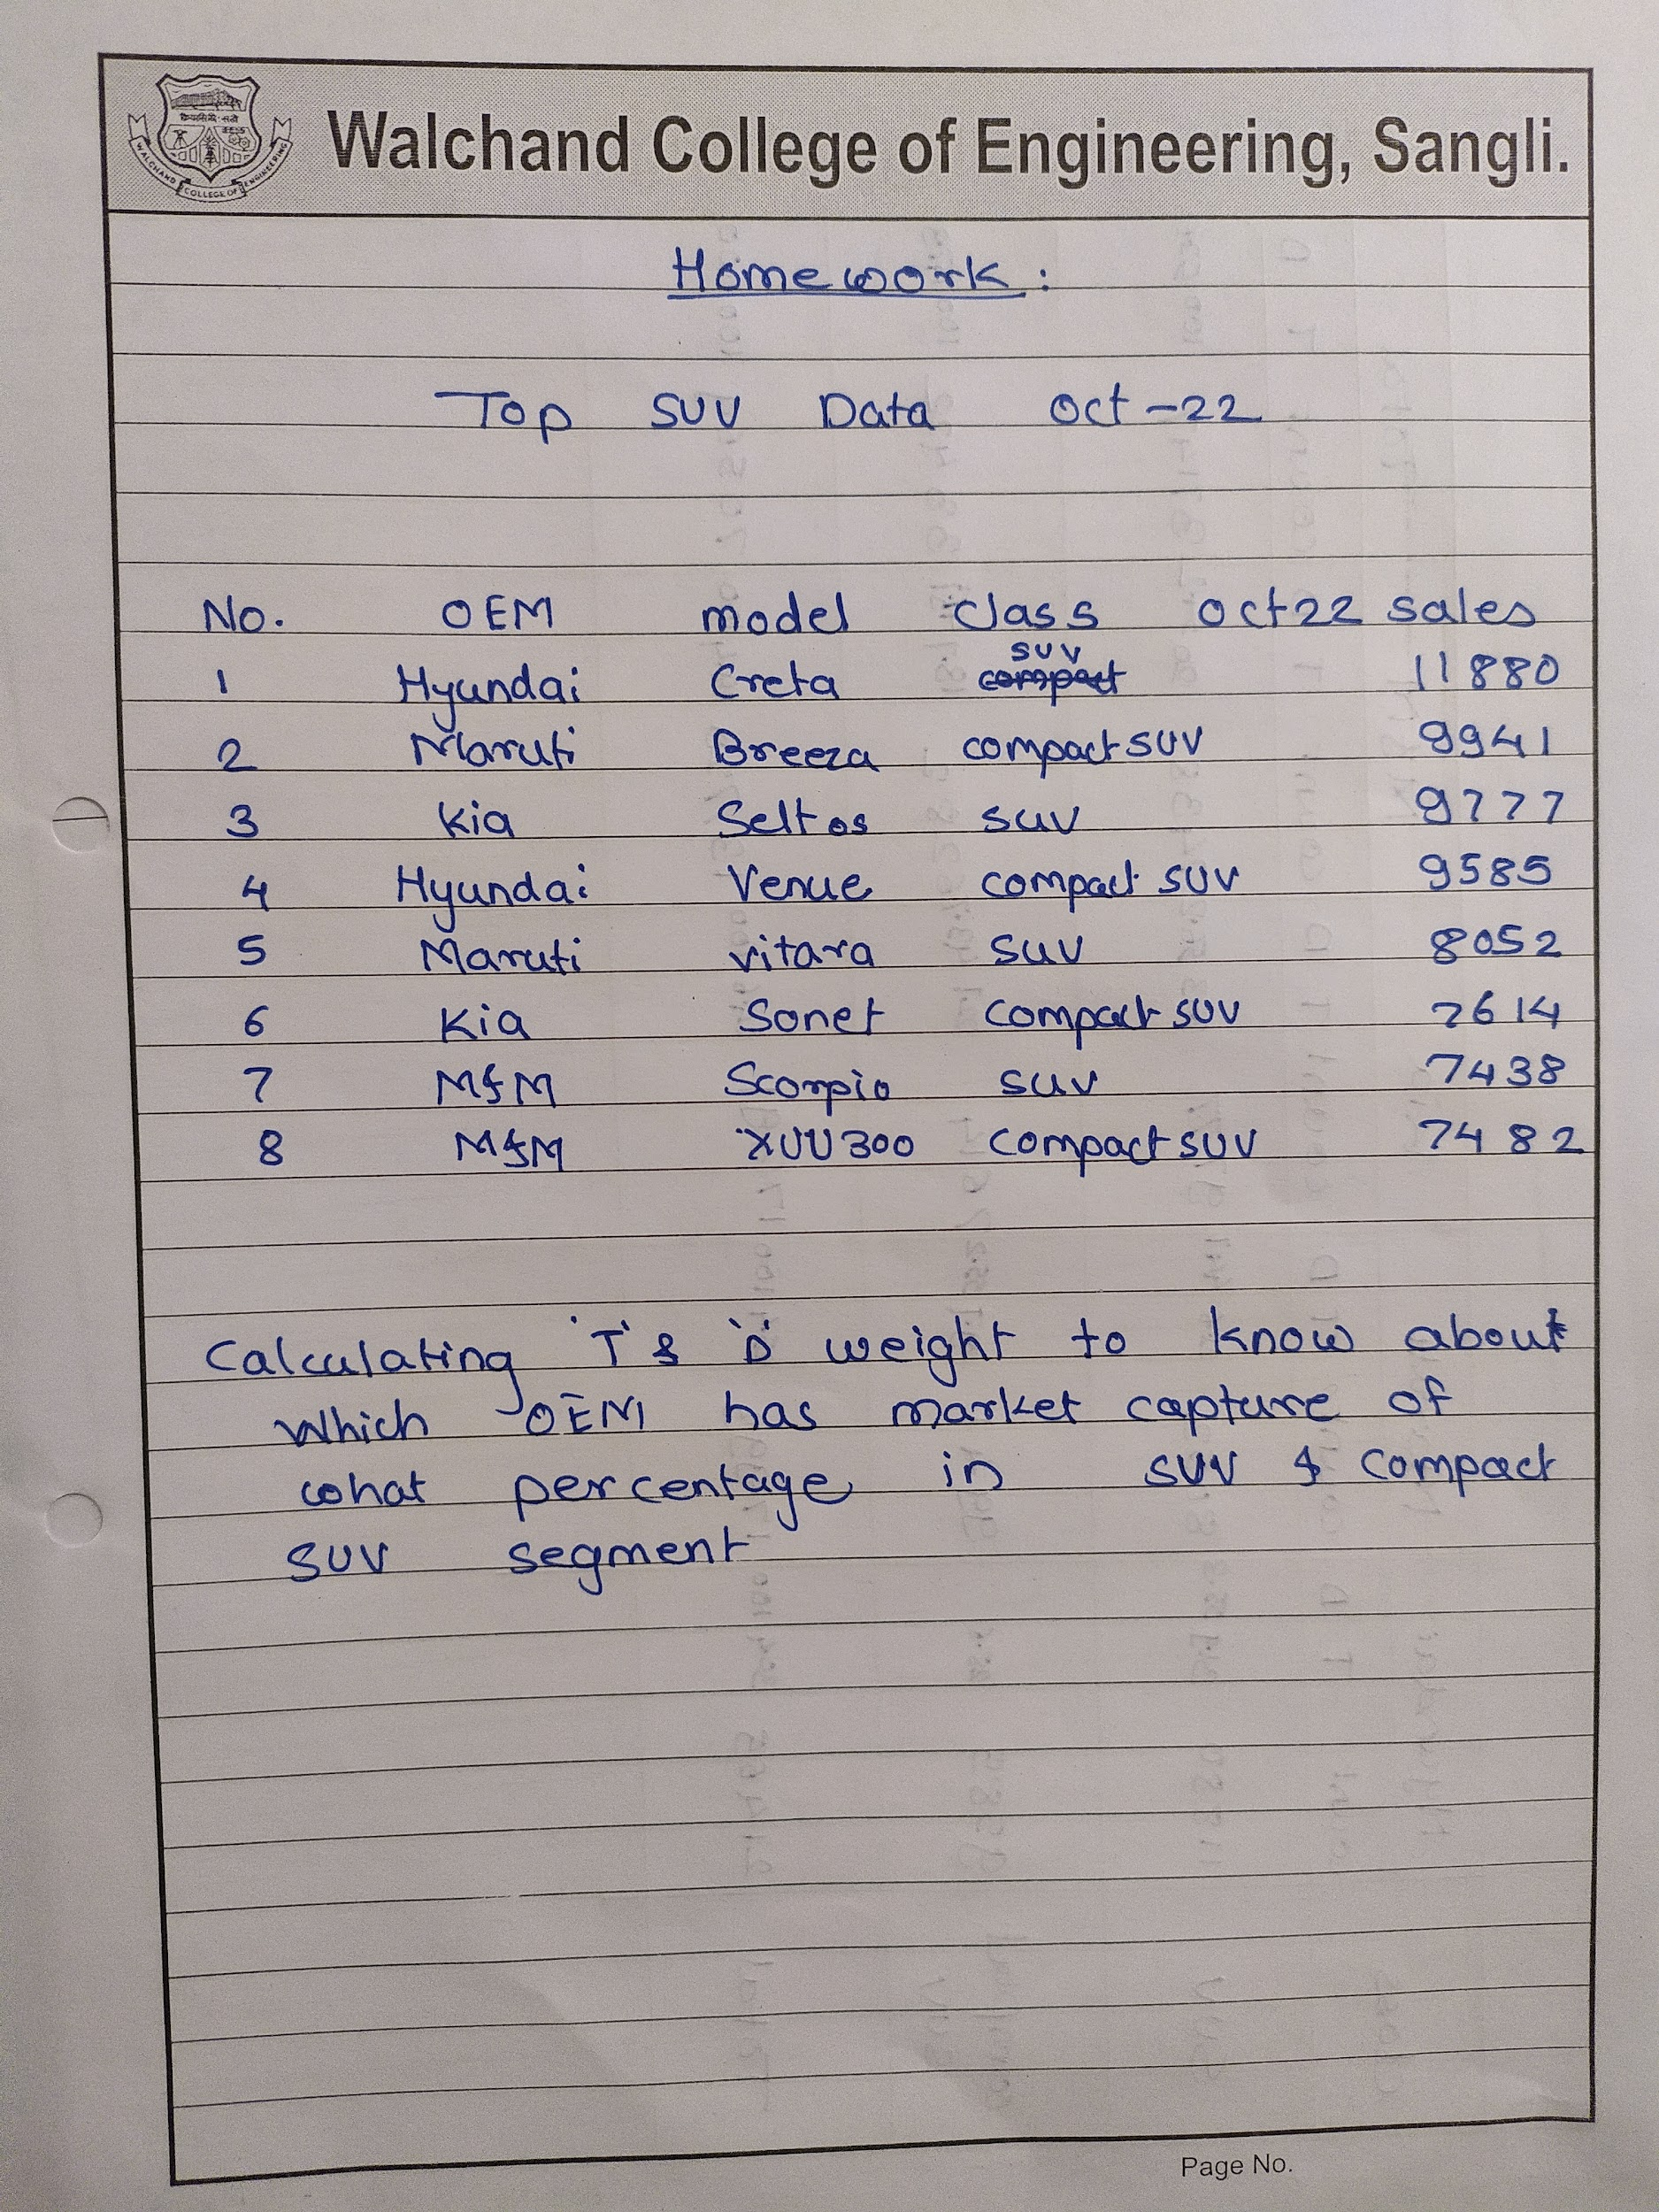 Walchand College of Engineering, Sangli.
WALCHAND COLLEGE OF ENGINEERING
Homework :
Top SUV Data Oct-22
No. OEM model class oct22 sales
1 Hyundai Creta SUV 11880
2 Maruti Breeza compact SUV 9941
3 Kia Seltos SUV 9777
4 Hyundai Venue compact SUV 9585
5 Maruti vitara SUV 8052
6 Kia Sonet Compact SUV 7614
7 M&M Scorpio SUV 7438
8 M&M XUV300 Compact SUV 7482
Calculating 'T' & 'D' weight to know about
which OEM has market capture of
what percentage in SUV & Compact
SUV segment
Page No.